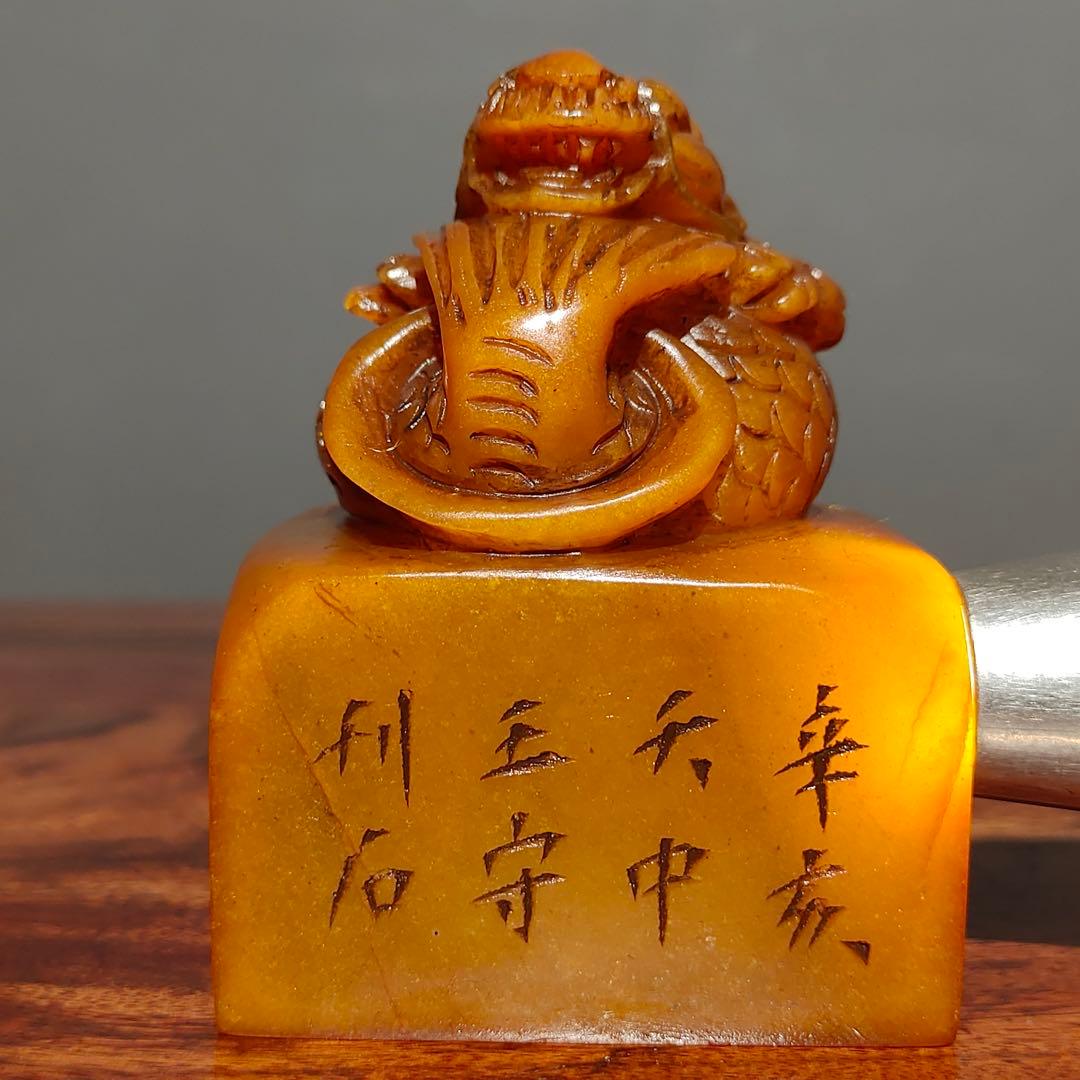 辛亥
天中
王守
刊石